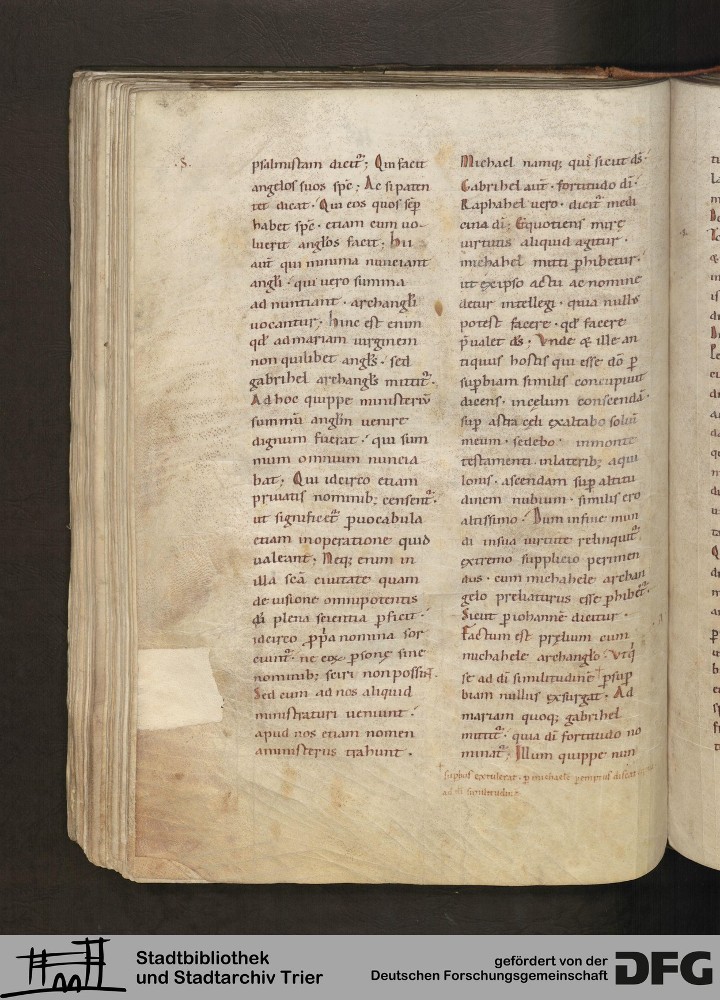 .S.
psalmistam dicit᷑; Qui facit
angelos suos sp̅c; Ac si paten
ter dicat. Qui eos quos sep̅
habet sp̅c. etiam cum uo-
luerit angl̅os facit; hii
aut̅ qui minima nunciant
angl̅i. qui uero summa
ad nuntiant. archangl̅i
uocantur; hinc est enim
qd̅ ad mariam uirginem
non quilibet angl̅s. sed
gabrihel archangl̅s mittit᷑.
Ad hoc quippe ministeriu̅
summu̅ angl̅m uenire
dignum fuerat. qui sum
mum omnium nuncia
bat; Qui idcirco etiam
priuatis nominib; censent᷑.
ut signific& ꝑ uocabula
etiam in operatione quid
ualeant; Neq; enim in
illa sc̅a ciuitate quam
de uisione omnipotentis
di̅ plena scientia ꝑficit.
idcirco ꝓpa nomina sor
ciunt᷑. ne eoꝝ ꝑsonę sine
nominib; sciri non possint.
Sed cum ad nos aliquid
ministraturi ueniunt.
apud nos etiam nomen
a ministeriis trahunt.
Michael namq; qui sicut ds̅.
Gabrihel aut̅. fortitudo di̅.
Raphahel uero. dicit᷑ medi
cina di̅; Et quotiens mirę
uirtutis aliquid agitur.
michahel mitti ꝑhibetur.
ut ex ipso actu ac nomine
detur intellegi. quia nullus
potest facere. qd̅ facere
p̅ualet ds̅; Vnde & ille an
tiquus hostis qui esse do̅ ꝑ
sup̱biam similis concupiuit
dicens. in celum conscenda̅.
sup̱ astra cęli exaltabo soliu̅
meum. sedebo in monte
testamenti. in laterib; aqui
lonis. ascendam sup̱ altitu
dinem nubium. similis ero
altissimo. Dum in fine mun
di in sua uirtute relinquit᷑
extremo supplicio perimen
dus. cum michahele archan
gelo preliaturus esse ꝑhibet᷑.
Sicut ꝑ iohanne̅ dicitur.
Factum est prelium cum
michahele archangl̅o. Vt q̅
se ad di̅ similitudine̅ ꝑ sup̱
biam nullus exsurgat. Ad
mariam quoq; gabrihel
mittit᷑. quia di̅ fortitudo no
minat᷑; Illum quippe nun
sup̱bus extulerat. ꝑ michaele ꝑemptus discat
ad di̅ similitudine̅
Stadtbibliothek
und Stadtarchiv Trier
gefördert von der
Deutschen Forschungsgemeinschaft
DFG